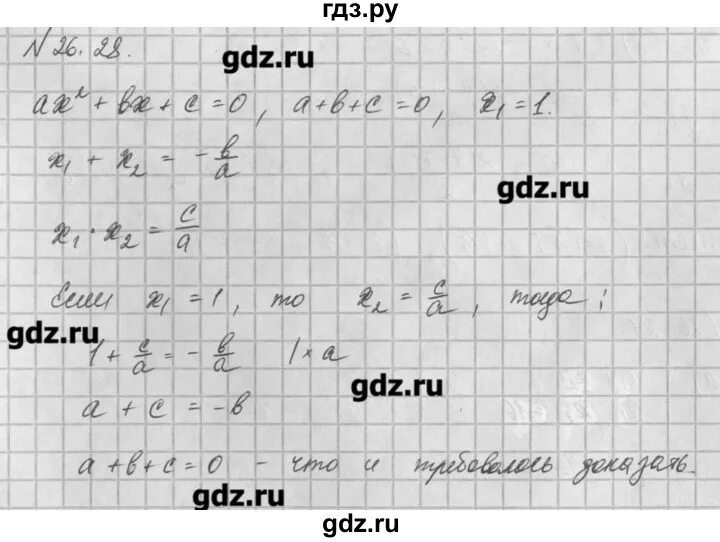 гдз.ру
N 26.28.
gdz.ru
ax² + bx + c = 0, a+b+c=0, x₁ = 1.
x₁ + x₂ = - b/a
gdz.ru
x₁ · x₂ = c/a
Если x₁ = 1, то x₂ = c/a, тогда:
gdz.ru
1 + c/a = - b/a | × a
gdz.ru
a + c = -b
a+b+c=0 - что и требовалось доказать.
gdz.ru
gdz.ru